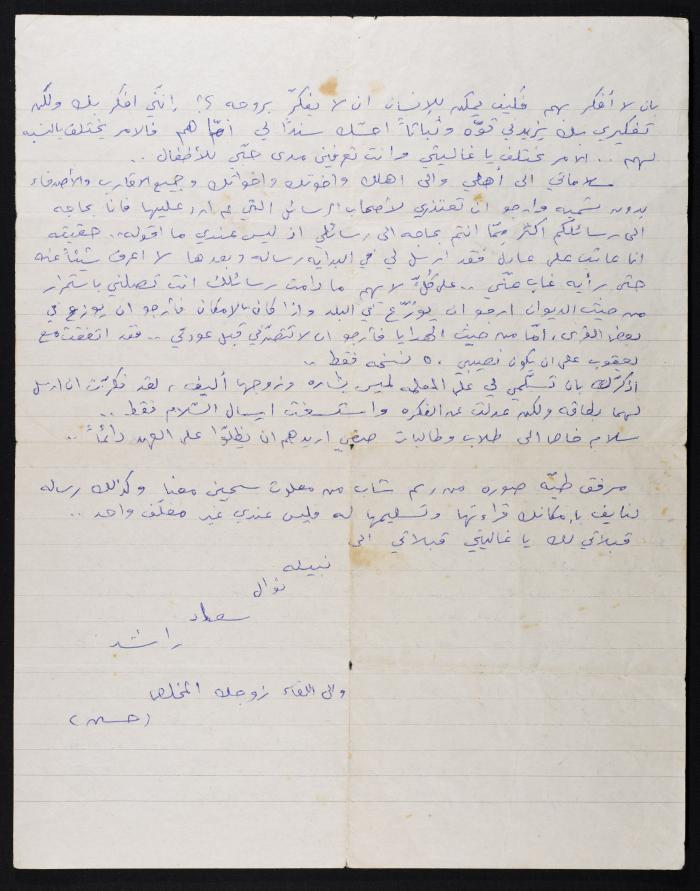 بان لا أفكر بهم فكيف يمكن للإنسان ان لا يفكّر بروحه ؟! إنني افكر بك ولكن
تفكيري بك يزيدني قوّه وثباتاً اعتبرك سنداً لي أمّا هم فالامر يختلف بالنسبه
لهم .. الامر يختلف يا غاليتي وانت تعرفين مدى حبّي للأطفال ..
سلاماتي الى أهلي والى اهلك واخوتك واخواتك وجميع الاقارب والأصدقاء
بدون تسميه وارجو ان تعتذري لأصحاب الرسائل التي لم ارد عليها فأنا بحاجه
الى رسائلكم أكثر ممّا انتم بحاجه الى رسائلي اذ ليس عندي ما اقوله .. حقيقته
انا عاتب على عادل فقد ارسل لي في البدايه رساله وبعدها لا اعرف شيئاً عنه
حتى رأيه غاب عنّي .. على كلٍّ لا يهم ما دامت رسائلك انت تصلني باستمرار
من حيث الديوان ارجو ان يوزّع في البلد واذا كان بالامكان فأرجو ان يوزع في
بعض القرى، أمّا من حيث الهدايا فأرجو ان لا تتصرّفي قبل عودتي .. فقد اتفقت مع
يعقوب على ان يكون نصيبي ٥٠ نسخه فقط ..
اذكرّك بان تسلّمي لي على المعلمه لميس بشاره وزوجها أليف ، لقد فكرّت ان ارسل
لهما بطاقه ولكن عدلت عن الفكره ارسال السّلام فقط ..
سلام خاص الى طلاب وطالبات صفي اريدهم ان يظلّوا على العهد دائماً ..
مرفق طيّه صوره من رسم شاب من معلوت سجين معنا وكذلك رساله
لنايف بإمكانك قراءتها وتسليمها له وليس عندي غير مغلّف واحد ..
قبلاتي لك يا غاليتي قبلاتي الى
نبيله
نوال
سعاد
راشد
والى اللقاء زوجك المخلص
(حسين)